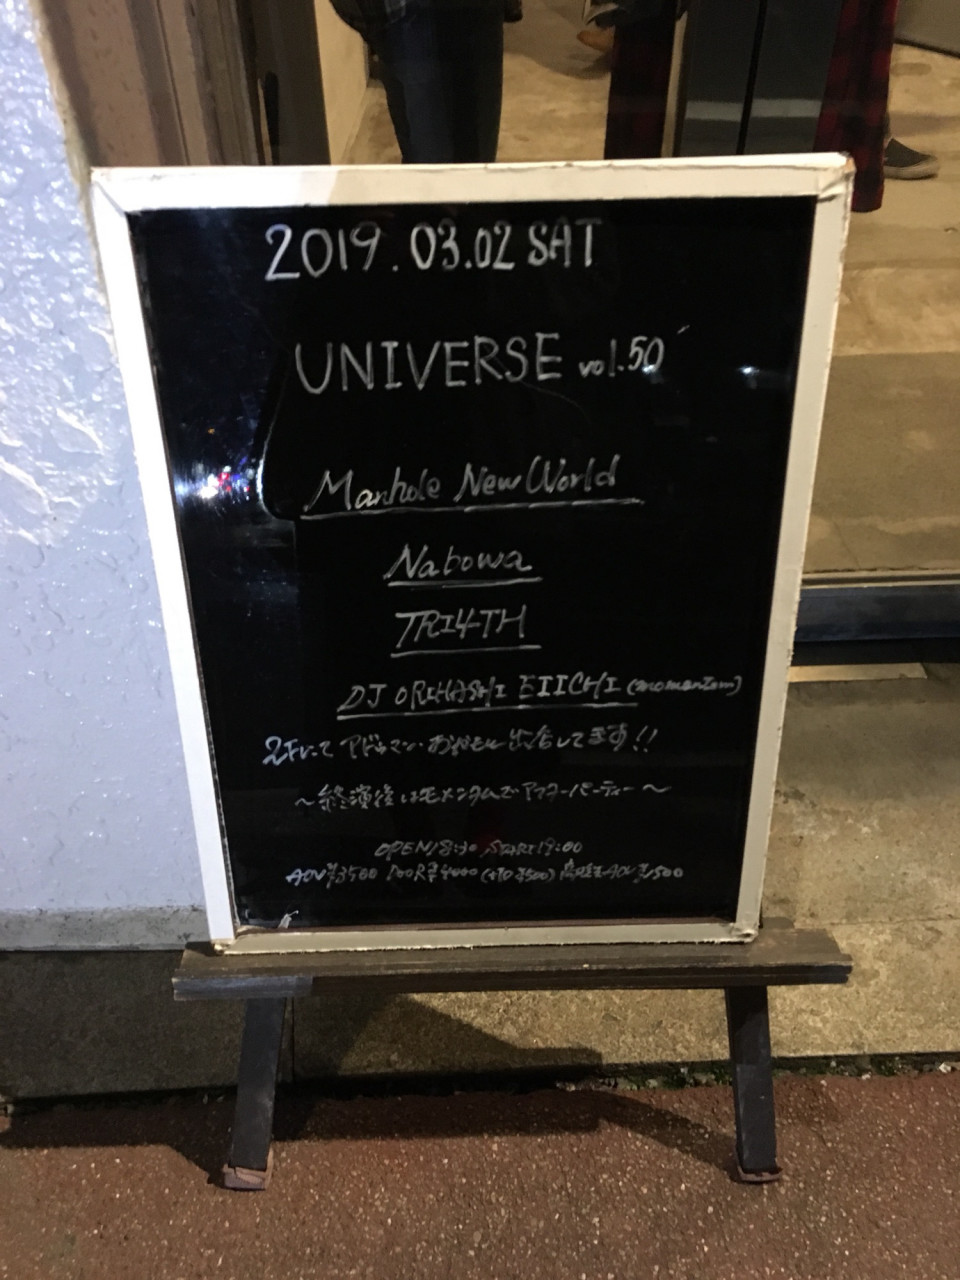 2019.03.02 SAT
UNIVERSE vol.50
Manhole New World
Nabowa
TRI4TH
DJ ORIHASHI EIICHI (momentom)
2Fにて アドゥマン 出店してます!!
〜終演後はモメンタムでアフターパーティー〜
OPEN18:30 START19:00
ADV¥3500 DOOR¥4000 (+1D ¥500) 高校生ADV¥1500